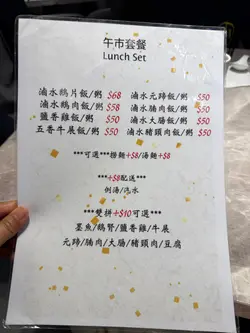 午市套餐
Lunch Set
滷水鵝片飯/粥 $68 滷水元蹄飯/粥 $50
滷水鵝肉飯/粥 $58 滷水腩肉飯/粥 $50
鹽香雞飯/粥 $50 滷水大腸飯/粥 $50
五香牛展飯/粥 $50 滷水豬頭肉飯/粥 $50
***可選***撈麵+$8/湯麵+$8
***+$8配送***
例湯/汽水
***雙拼+$10可選***
墨魚/鵝腎/鹽香雞/牛展
元蹄/腩肉/大腸/豬頭肉/豆腐